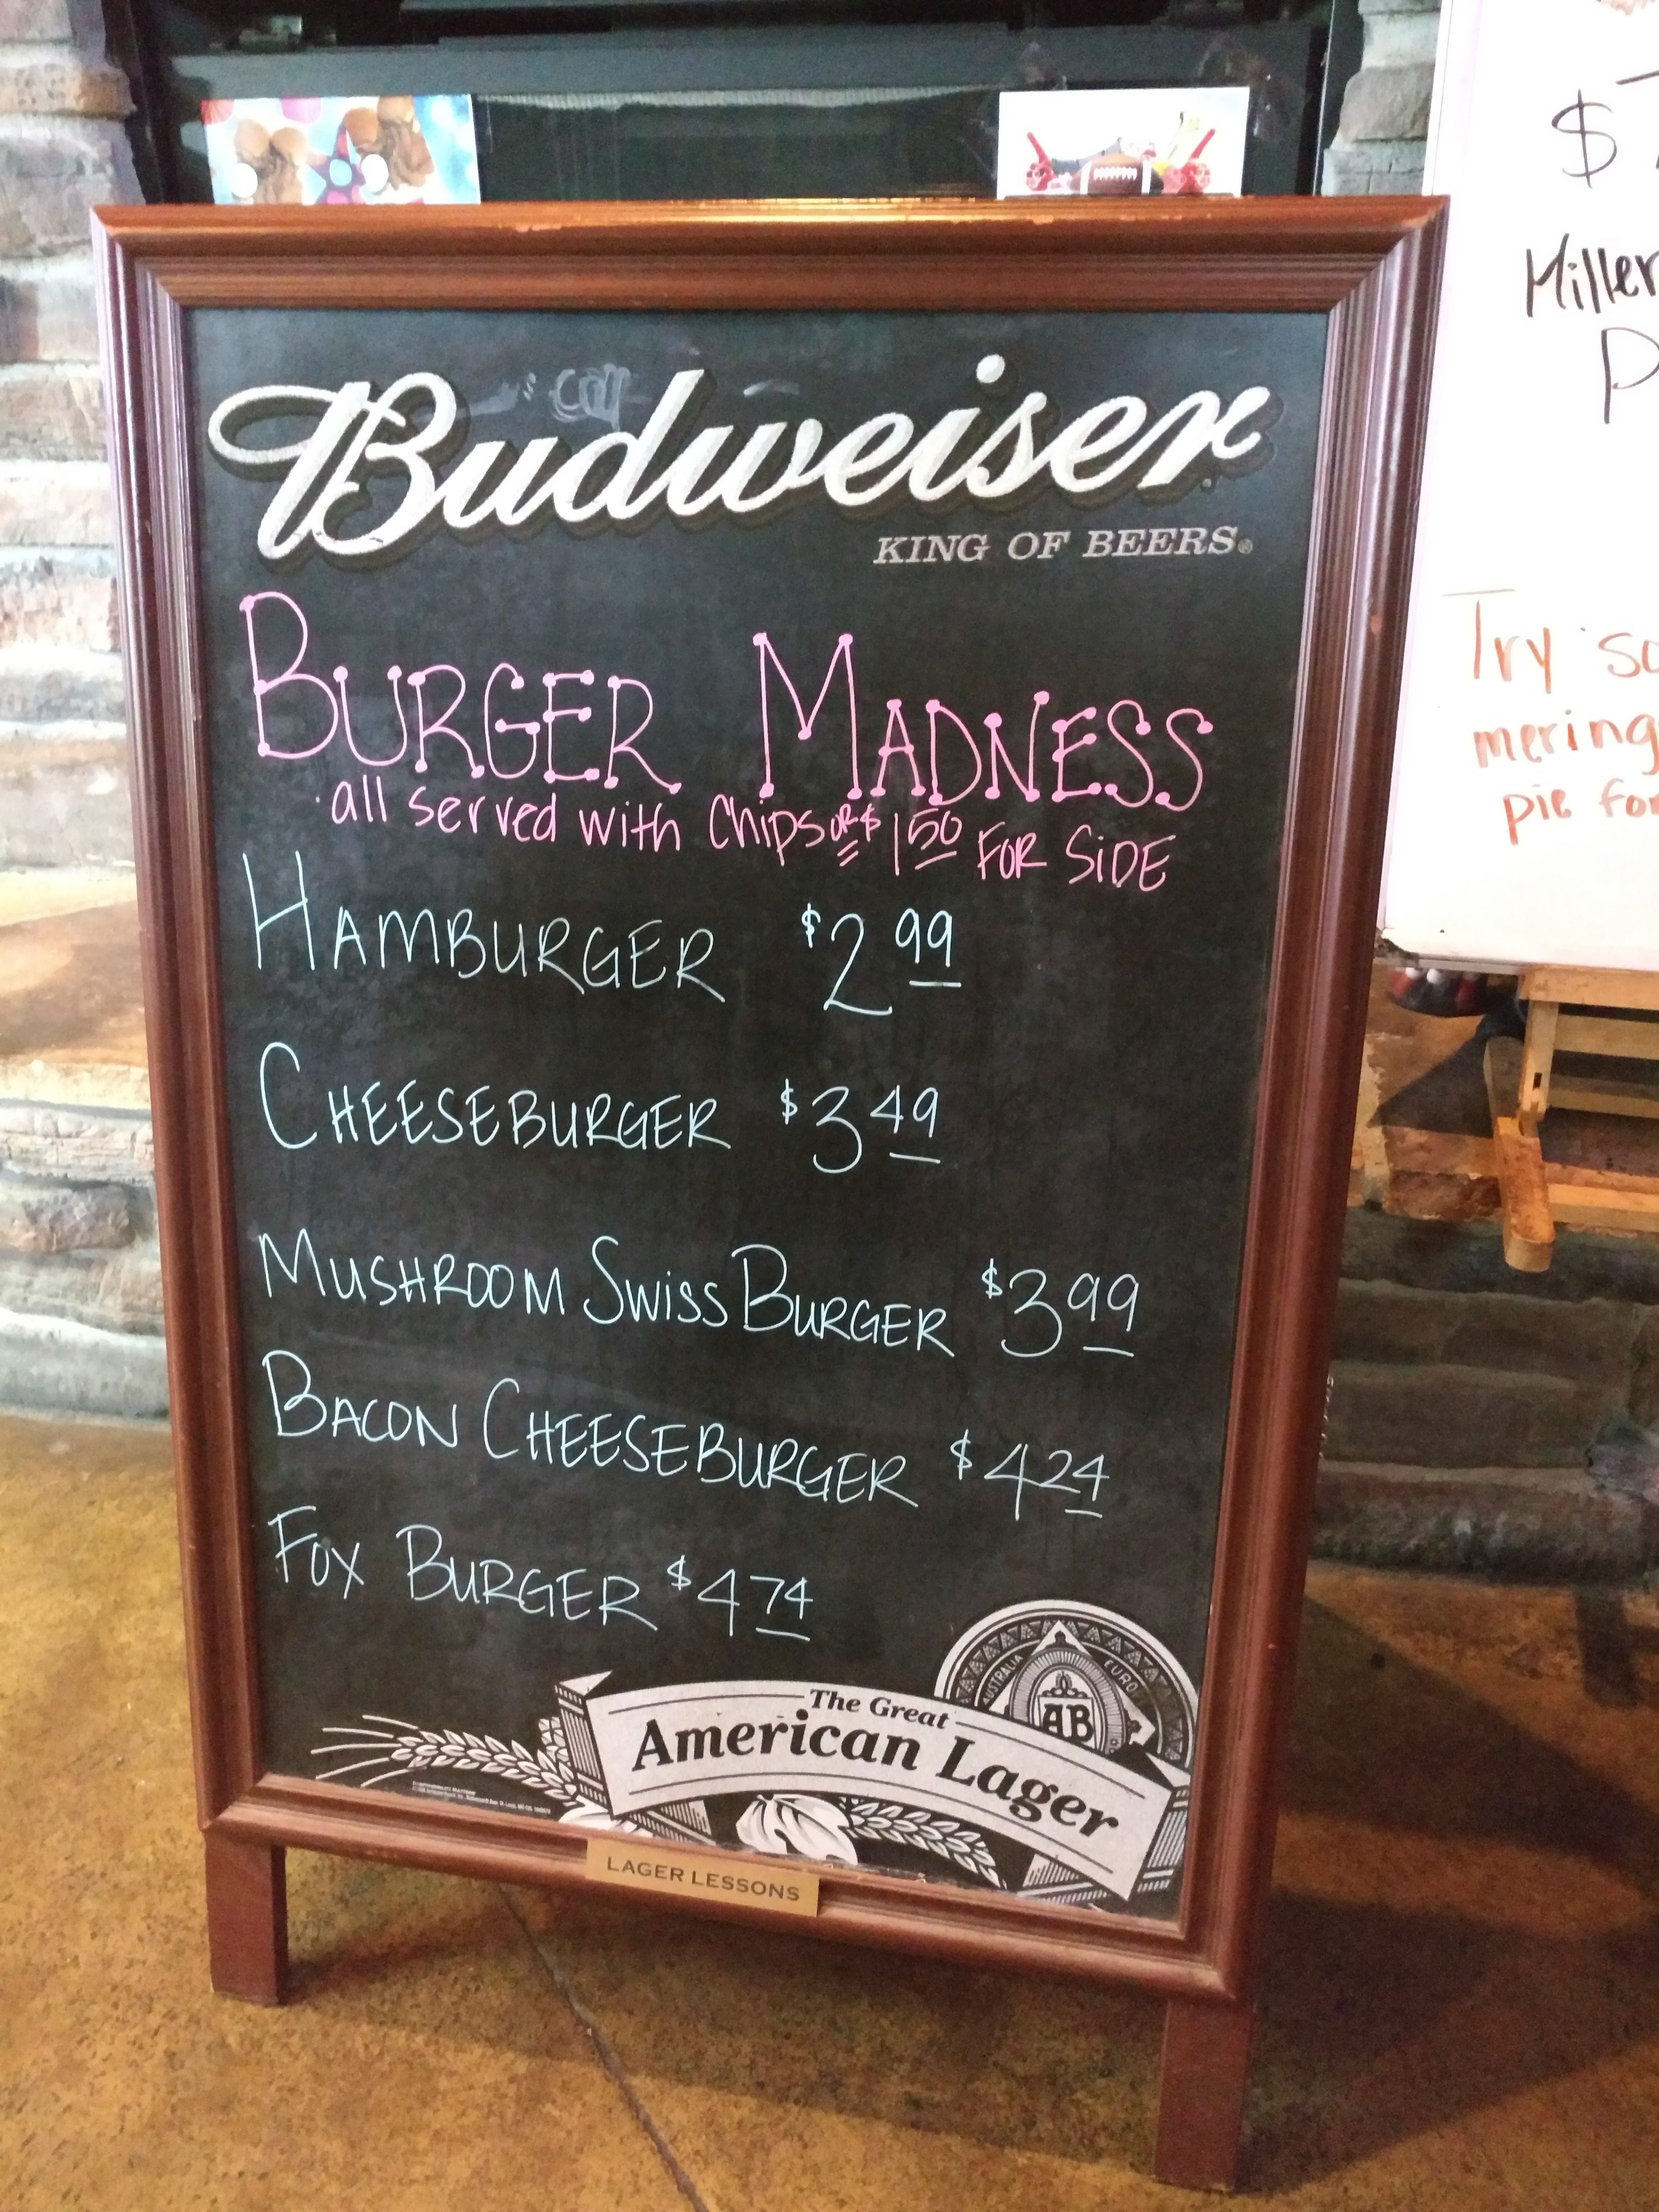 Budweiser
KING OF BEERS®
BURGER MADNESS
all served with Chips OR $1.50 FOR SiDE
HAMBURGER $2 99
CHEESEBURGER $3 49
MUSHROOM SWiSS BURGER $3 99
BACON CHEESEBURGER $4 24
FOX BURGER $4 74
AUSTRALIA EURO
AB
The Great
American Lager
LAGER LESSONS
$
Miller
P
Try so
mering
pie for